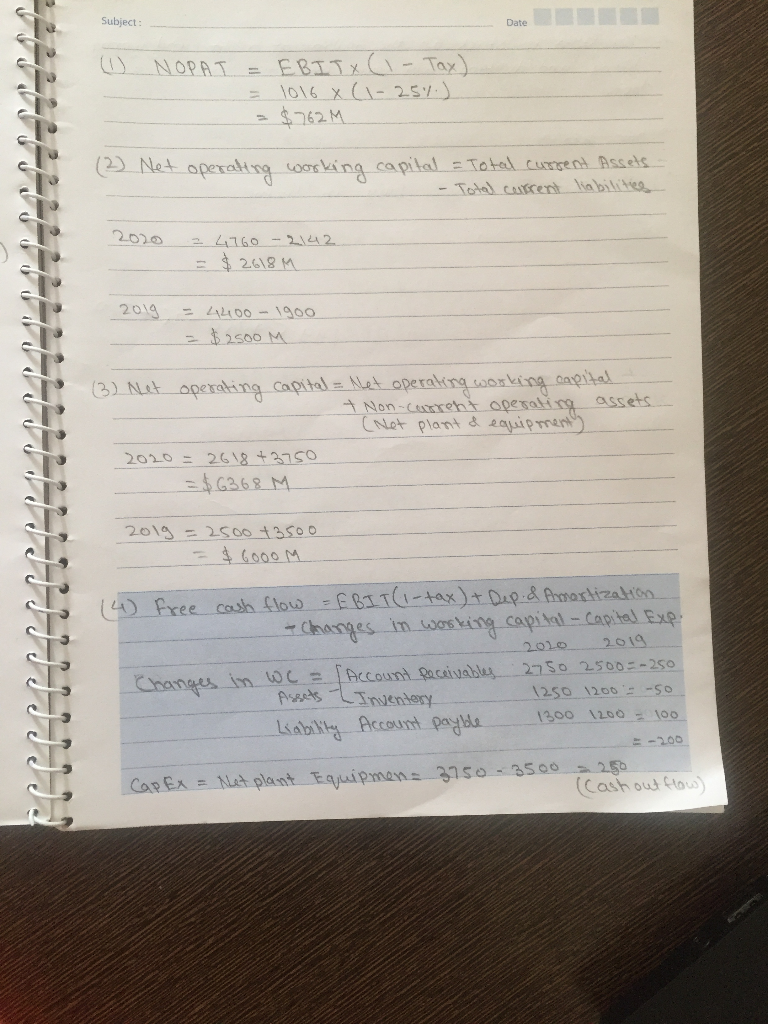 Subject:
Date
(1) NOPAT = EBIT x (1 - Tax)
= 1016 x (1 - 25%)
= $762M
(2) Net operating working capital = Total current Assets
- Total current liabilites
2020 = 4760 - 2142
= $ 2618 M
2019 = 4400 - 1900
= $2500 M
(3) Net operating capital = Net operating working capital
+ Non-current operating assets
(Net plant & equipment)
2020 = 2618 + 3750
= $6368 M
2019 = 2500 + 3500
= $ 6000 M
(4) Free cash flow = EBIT(1-tax) + Dep. & Amortization
+ changes in working capital - Capital Exp.
2020 2019
Changes in WC = Account Receivables 2750 2500 = -250
Assets Inventory 1250 1200 = -50
Liability Account payble 1300 1200 = 100
= -200
CapEx = Net plant Equipmen = 3750 - 3500 = 250
(Cash out flow)